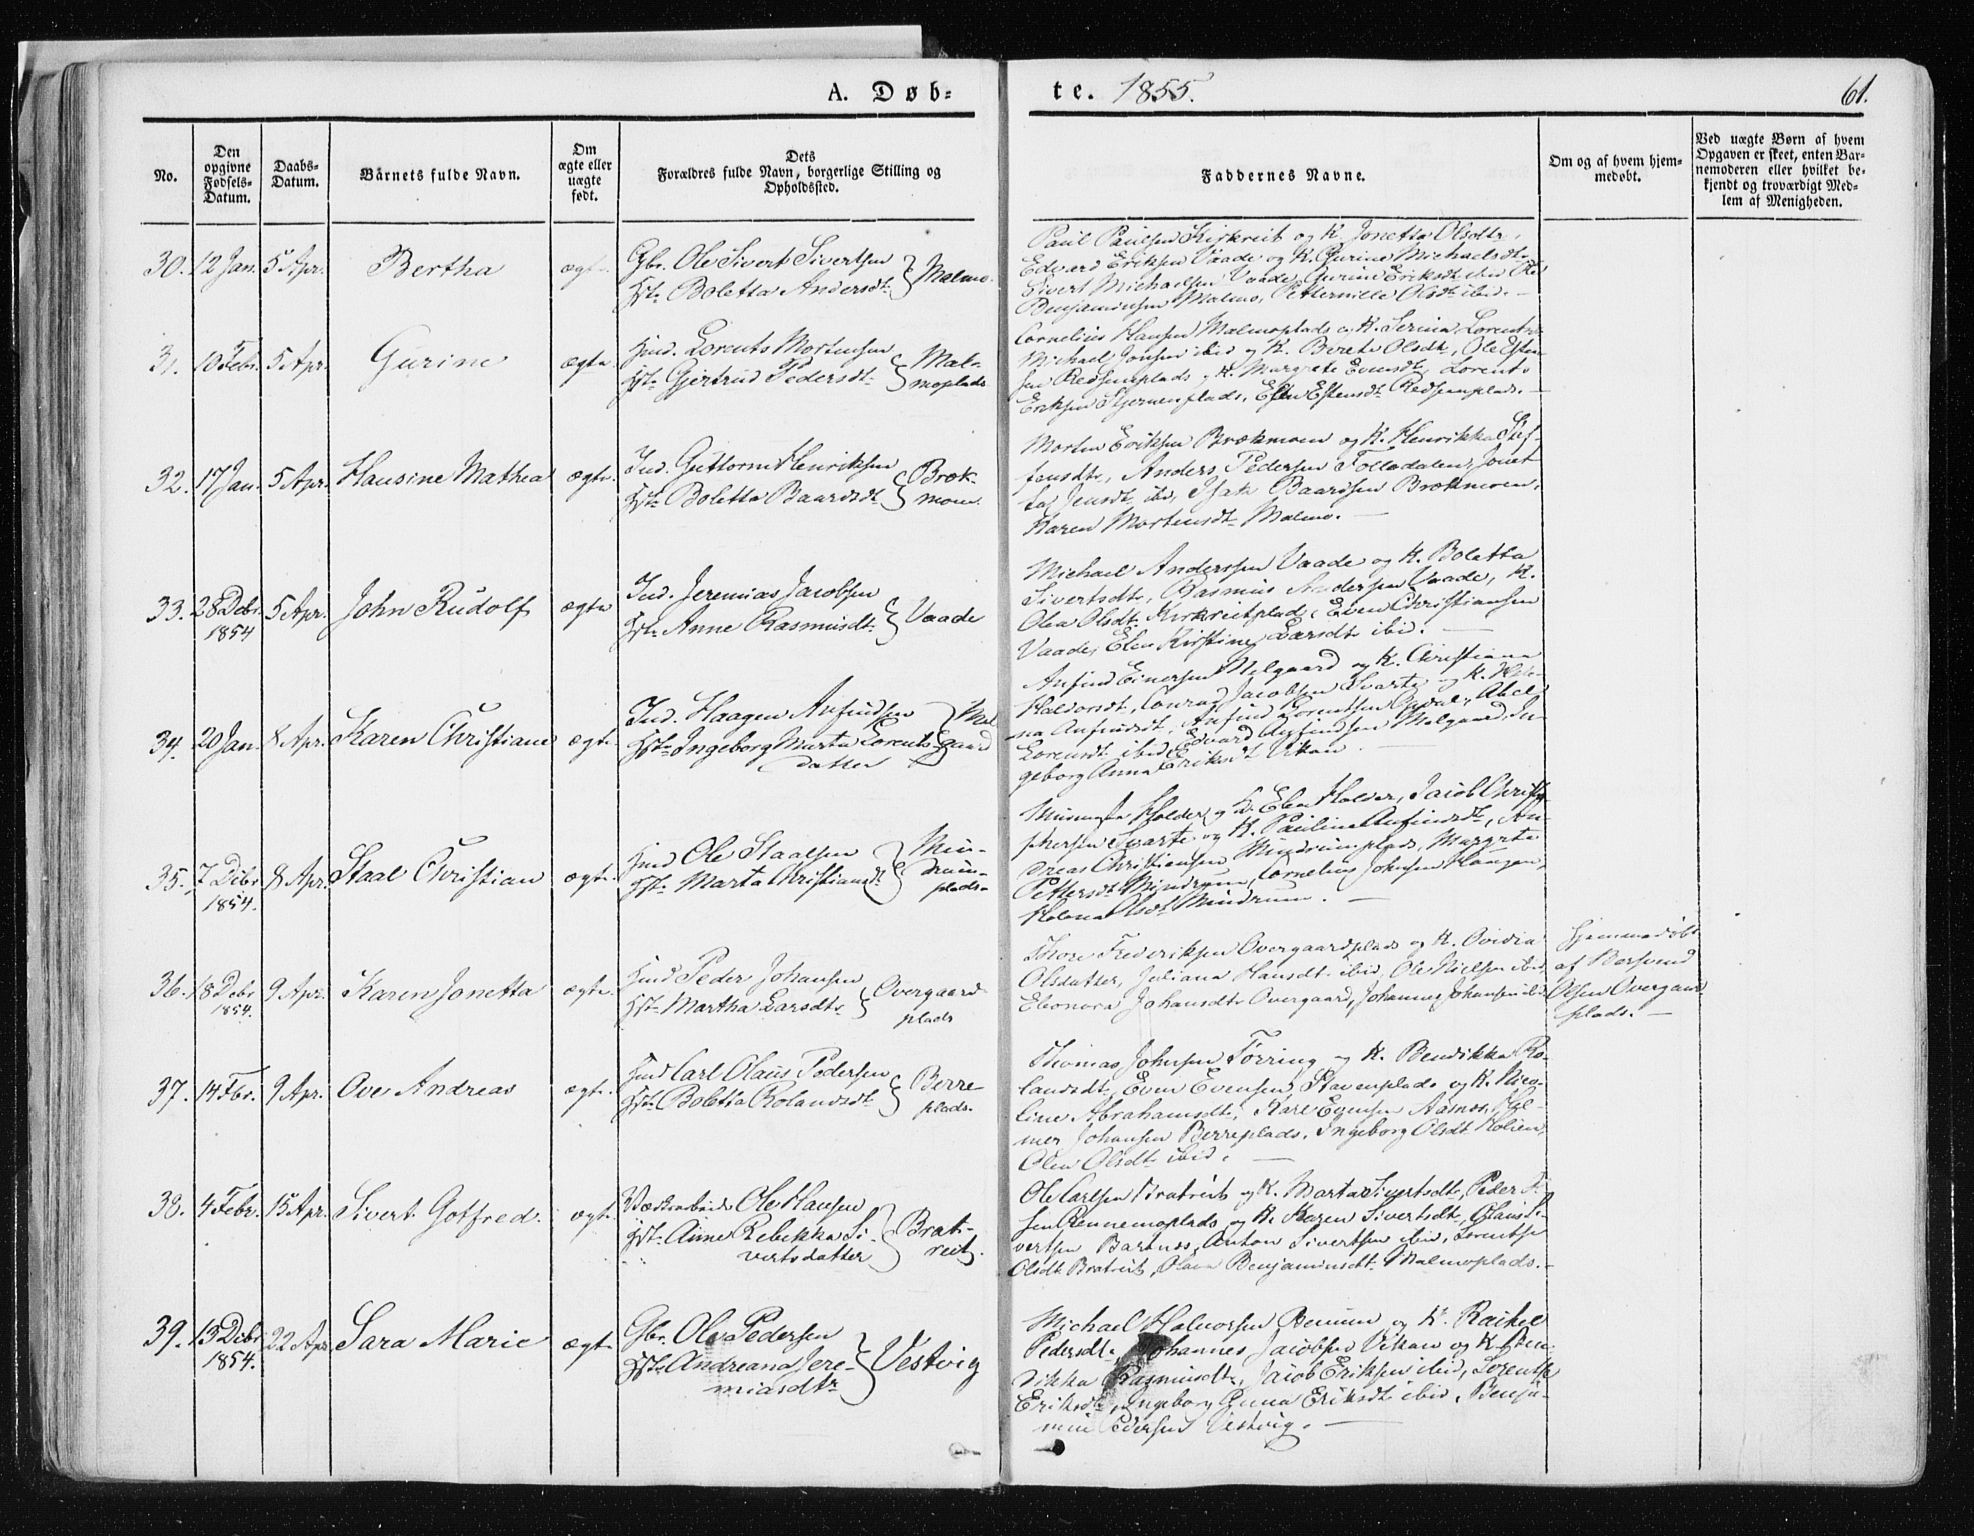 A. Døb-
te. 1855.
61.
No.
Den
opgivne
Fødsels-
Datum.
Daabs-
Datum.
Barnets fulde Navn.
Om
ægte eller
uægte
født.
Dets
Forældres fulde Navn, borgerlige Stilling og
Opholdssted.
Faddernes Navne.
Om og af hvem hjem-
medøbt.
Ved uægte Børn af hvem
Opgaven er skeet, enten Bar-
nemoderen eller hvilket be-
kjendt og troværdigt Med-
lem af Menigheden.
30. 12 Jan. 5 Apr. Bertha ægte
Gbr. Ole Sivert Sivertsen
Hst. Boletta Andersdt.
Malmo.
Paul Paulsen Kirkreit og K. Jonetta Olsdtr,
Edvard Eriksen Vaade og K. Gurine Michaelsdt.
Sivert Michaelsen Vaade, Gurine Eriksdt ibid Ole
Benjaminsen Malmo, Petternille Olsdt ibid. —
31. 10 Febr. 5 Apr. Gurine ægte
Hmd. Lorents Mortensen
Hst. Gjertrud Pedersdt.
Mal-
moplads
Cornelius Hansen Malmoplads og K. Serina Lorents
Michael Jonsen ibid og K. Berete Olsdt, Ole Esten-
sen Redsemplads, K. Margrete Evensdt, Lorents
Eriksen Stjernenplads, Elen Estensdt Redsemplads. —
32. 17 Jan. 5 Apr. Hansine Mathea ægte
Ind. Guttorm Henriksen
Hst. Boletta Baardsdt
Bræk-
moen
Morten Eriksen Brækmoen og K. Henrikka Stef-
fensdtr, Anders Pedersen Folladalen, Jonet-
ta Jensdt ibid, Isak Baardsen Brækmoen,
Karen Mortensdt Malmo. —
33. 28 Debr. 1854 5 Apr. John Rudolf ægte
Ind. Jeremias Jacobsen
Hst. Anne Rasmusdt.
Vaade
Michael Anderssen Vaade og K. Boletta
Sivertsdtr, Rasmus Andersen Vaade, K.
Olea Olsdt. Kirkreitplads, Even Christiansen
Vaade, Elen Kirstine Larsdt ibid. —
34. 20 Jan. 8 Apr. Karen Christiane ægte
Ind. Haagen Anfindsen
Hst. Ingeborg Marta Lorents-
datter
Mel-
gaard
Anfind Einersen Melgaard og K. Christiana
Haldorsdt, Conrad Jacobsen Svarte og K. Hele-
na Anfindsdt, Anfind Lorentsen Opdal, Abel
Lorensdt ibid, Edvard Anfindsen Melgaard, In-
geborg Anna Eriksdt Vikan
35. 7 Debr 1854. 8 Apr. Staal Christian ægte
Hmd Ole Staalsen
Hst. Marta Christiansdt
Min-
drum-
plads
Holder og K. Elen Holder, Jacob Christo-
phersen Svarte og K. Pauline Anfindsdt, An-
dreas Christiansen Mindrumplads, Margrete
Pettersdt Mindrum, Cornelius Johnsen Haugan,
Helena Olsdt Mindrum. —
36. 18 Debr 1854. 9 Apr. Karen Jonetta ægte
Hmd Peder Johansen
Hst. Martha Larsdtr
Overgaard-
plads
Thore Frederiksen Overgaardplads og K. Ovidia
Olsdatter, Juliana Hansdt ibid, Ole Nielsen ibid,
Eleonora Johansdtr Overgaard, Johannes Johansen ibid
Hjemmedøbt
af Bersvend
Olsen Overgaard-
plads. —
37. 14 Fbr. 9 Apr. Ove Andreas ægte
Hmd Carl Olaus Pedersen
Hst. Boletta Rolandsdt
Berre-
plads.
Thomas Johnsen Førring og K. Bendikka Ro-
landsdt, Even Evensen Stavenplads og K. Nico-
line Abrahamsdt, Karl Evensen Aasnes, Hel-
mer Johansen Berreplads, Ingeborg Olsdt Holien,
Olea Olsdt ibid. —
38. 4 Febr. 15 Apr. Sivert Gotfred. ægte
Ole Hansen
Hst. Anne Rebekka Si-
vertsdatter
Brat-
reit
Ole Carlsen Bratreit og K. Marta Sivertsdtr, Peder
sen Rennemoplads og K. Karen Sivertsdt, Olaus Si-
vertsen Bartnes, Anton Sivertsen ibid, Lorentse
Olsdt Bratreit, Olava Benjaminsdt Malmoplads. —
39. 13 Debr 1854. 22 Apr. Sara Marie ægte
Gbr. Ole Pedersen
Hst. Andreana Jere-
miasdtr
Vestvig
Michael Halvorsen Benum og K. Raikel
Pedersdt, Johannes Jacobsen Vikan og K. Ben-
dikka Rasmusdt, Jacob Eriksen ibid, Lorentse
Eriksdt, Ingeborg Anna Eriksdt ibid, Benja-
min Pedersen Vestvig. —